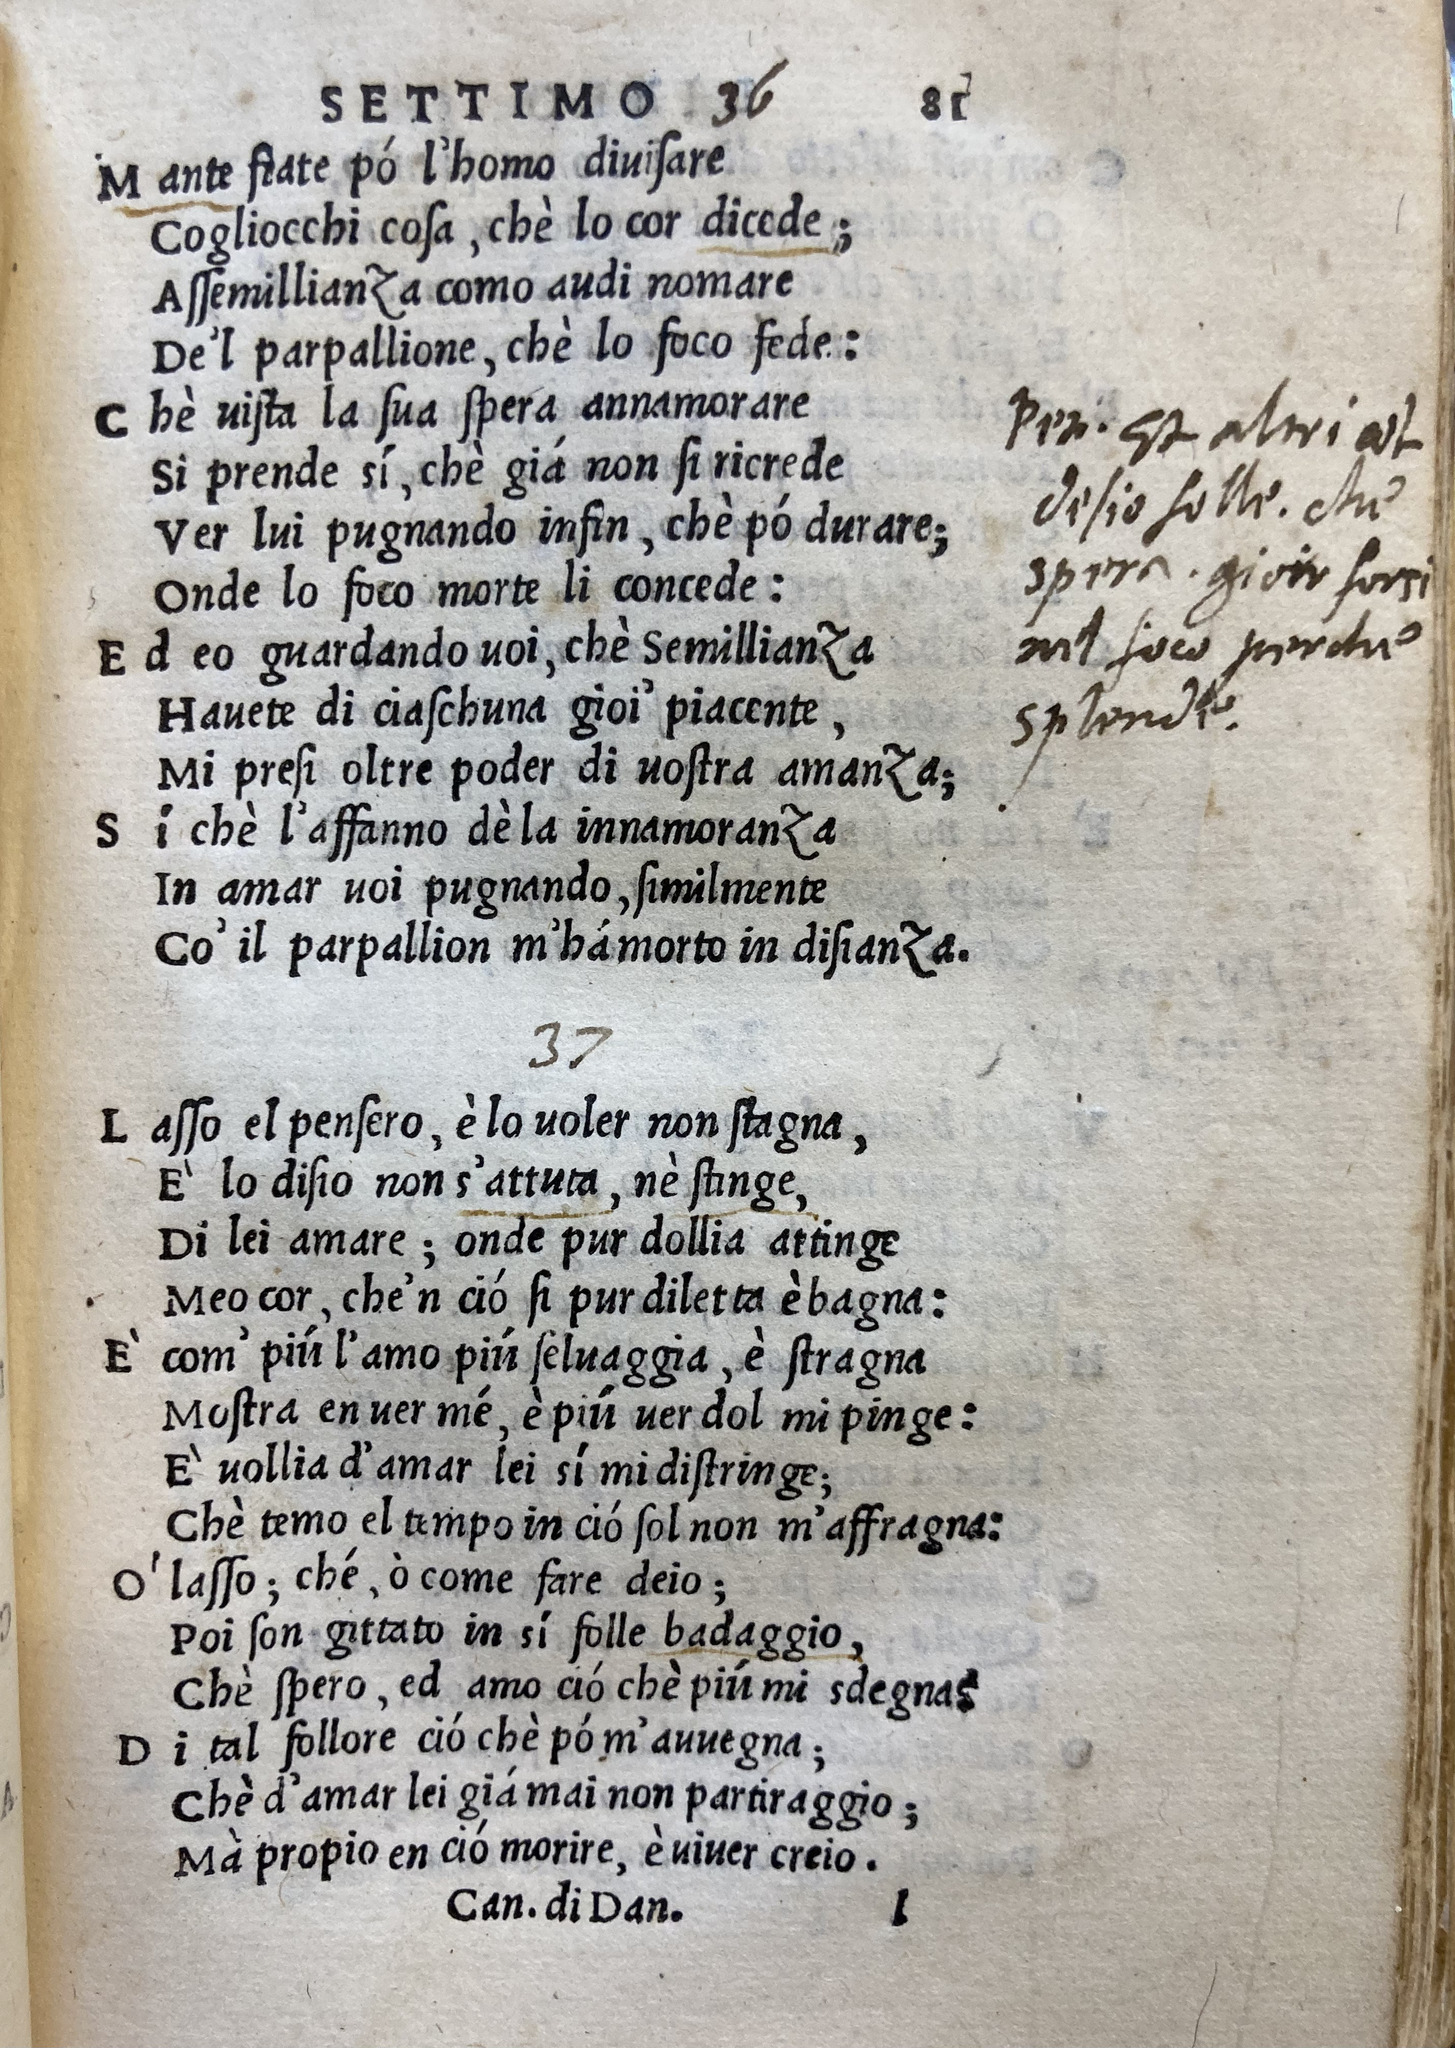 SETTIMO 36 81
Mante fiate pó l'homo diuiſare
Cogliocchi coſa, chè lo cor dicede;
Aſſemillianza como audi nomare
De'l parpallione, chè lo foco fede:
Chè uiſta la ſua ſpera annamorare
Si prende sí, chè giá non ſi ricrede
Ver lui pugnando infin, chè pó durare;
Onde lo foco morte li concede:
Ed eo guardando uoi, chè Semillianza
Hauete di ciaſchuna gioi' piacente,
Mi preſi oltre poder di uoſtra amanza;
Sí chè l'affanno dè la innamoranza
In amar uoi pugnando, ſimilmente
Co' il parpallion m'há morto in diſianza.
Pet. Et altri col
deſio folle. che
spera. gioir forsi
nel foco perche
splende.
37
Laſſo el penſero, è lo uoler non ſtagna,
E` lo diſio non s'attuta, nè ſtinge,
Di lei amare; onde pur dollia attinge
Meo cor, che'n ció ſi pur diletta è bagna:
E` com' piú l'amo piú ſeluaggia, è ſtragna
Moſtra en uer mé, è piú uer dol mi pinge:
E` uollia d'amar lei sí mi diſtringe;
Chè temo el tempo in ció ſol non m'affragna:
O' laſſo; ché, ò come fare deio;
Poi ſon gittato in sí folle badaggio,
Chè ſpero, ed amo ció chè piú mi sdegna:
Di tal follore ció chè pó m'auuegna;
Chè d'amar lei giá mai non partiraggio;
Mà propio en ció morire, è uiuer creio.
Can. di Dan. l